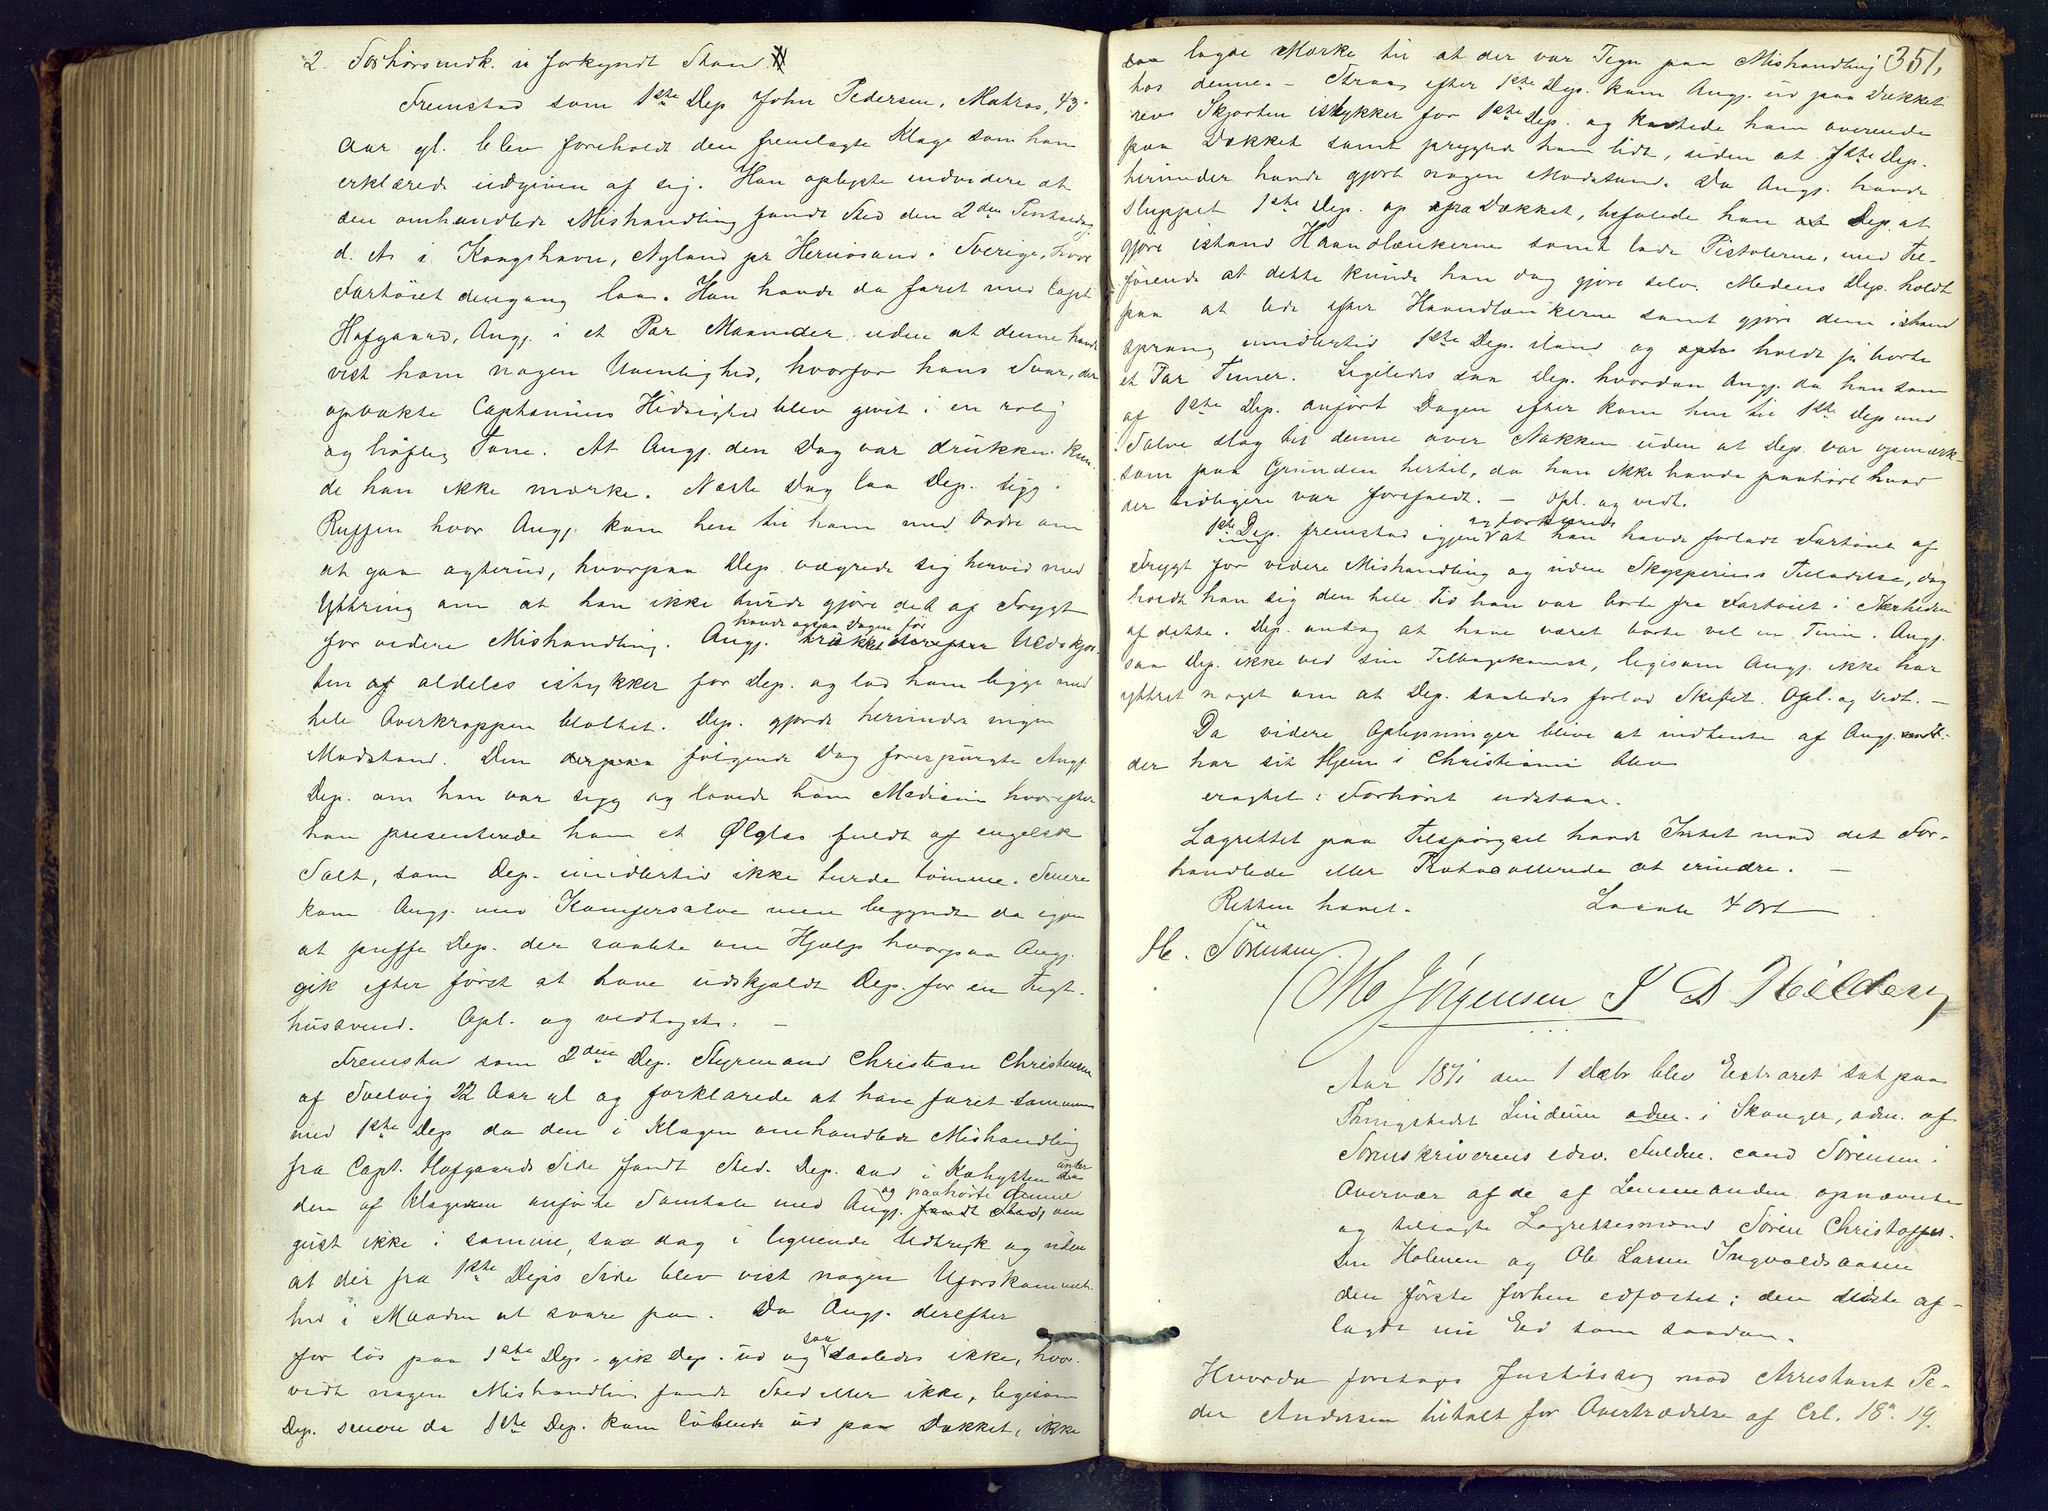 2. Forhørsindk. i forkyndt Stand
Fremstod som 1ste Dep John Pedersen, Matros, 43
Aar gl. blev foreholdt den fremlagte Klage som han
erklærede udgiven af sig. Han oplyste endvidere at
den omhandlede Mishandling fandt Sted den 2den Pintsedag
d. A. i Kongshavn, Nyland pr Hernösand i Sverige, hvor
Fartöiet dengang laa. Han havde da faret med Capt
Hofgaard, Ang. i et Par Maaneder uden at denne havde
vist ham nogen Uvenlighed, hvorfor hans Svar, der
opvakte Captainens Hidsighed blev givet i en rolig
og höflig Tone. At Ang. den Dag var drukken kun-
de han ikke mærke. Næste Dag laa Dep. syg i
Ruffen hvor Ang. kom hen til ham med Ordre om
at gaa agterud, hvorpaa Dep. vægrede sig herved med
Yttring om at han ikke turde gjöre det af Frygt
for videre Mishandling. Ang. havde ogsaa Dagen för Uldskjor-
ten af aldeles istykker for Dep. og lod ham ligge med
hele Overkroppen blottet. Dep. gjorde herunder ingen
Modstand. Den derpaa følgende Dag forespurgte Ang.
Dep. om han var syg og lovede ham Medicin hvorefter
han presenterede ham et Ølglas fuldt af engelsk
Salt, som Dep. imidlertid ikke turde tömme. Senere
kom Ang. med Kamfersalve men begyndte da igjen
at puffe Dep. der raabte om Hjælp hvorpaa Ang.
gik efter først at have udskjældt Dep. for en Tugt-
hussvend. Opl. og vedtaget. —
Fremstod som 2den Dep. Styrmand Christian Christensen
af Svelvig 22 Aar gl og forklarede at have faret sammen
med 1ste Dep da den i Klagen omhandlede Mishandling
fra Capt. Hofgaards Side fandt Sted. Dep. sad i Kahytten under
den af Klageren anförte Samtale med Ang. og paahörte denne om
end ikke i samme, saa dog i lignende Udtryk og uden
at der fra 1ste Deps Side blev vist nogen Uforskammet-
hed i Maaden at svare paa. Da Ang. derefter
for lös paa 1ste Dep. gik Dep. ud og saa saaledes ikke, hvor-
vidt nogen Mishandling fandt Sted eller ikke, ligesom
Dep. senere da 1ste Dep. kom löbende ud paa Dækket, ikke
351.
saa lagde Mærke til at der var Tegn paa Mishandling
hos denne. — Strax efter 1ste Dep. kom Ang. ud paa Dækket
rev Skjorten istykker for 1ste Dep. og kastede ham overende
paa Dækket samt pryglede ham lidt, uden at 1ste Dep.
herunder havde gjort nogen Modstand. Da Ang. havde
sluppet 1ste Dep. op fra Dækket, befalede han Dep. at
gjöre istand Haandlænkerne samt lade Pistolerne, med Til-
föiende at dette kunde han dog gjöre selv. Medens Dep. holdt
paa at lede efter Haandlænkerne samt gjöre dem istand
sprang imidlertid 1ste Dep. iland og holdt sig borte
et Par Timer. Ligeledes saa Dep. hvordan Ang. da han som
af 1ste Dep. anfört Dagen efter kom hen til 1ste Dep med
Salve slog til denne over Nakken uden at Dep. var opmærk-
som paa Grunden hertil, da han ikke havde paahört hvad
der tidligere var forefaldt. — Opl. og vedt.
1ste Dep. fremstod igjen og forklarede at han havde forladt Fartöiet af
Frygt for videre Mishandling og uden Skipperens Tilladelse, dog
holdt han sig den hele Tid han var borte fra Fartöiet i Nærheden
af dette. Dep. antog at have været borte vel en Time. Ang.
saa Dep. ikke ved sin Tilbagekomst, ligesom Ang. ikke har
yttret noget om at Dep. saaledes forlod Skibet. Opl. og vedt. —
Da videre Oplysninger blive at indhente af Ang.
der har sit Hjem i Christiania blev
eragtet: Forhöret udstaar.
Lagrettet paa Tilspörgsel havde Intet mod det For-
handlede eller Protocollerede at erindre. —
Retten hævet. Laante 4 Ort
H. Sörensen.
M Jörgensen
Aar 1871 den 1 Decbr blev Extraret sat paa
Thingstedet Lindum adm. i Skouger, adm. af
Sorenskriverens edsv. Fuldm. cand Sörensen i
Overvær af de af Lensmanden opnævnte
og tilsagte Lagrettesmænd Sören Christoffer-
sen Holmen og Ole Larsen Ingvaldsaasen
den förste forhen edfæstet; den sidste af-
lagde nu Ed som saadan.
Hvorda foretoges Justitssag mod Arrestant Pe-
der Andersen tiltalt for Overtrædelse af Crl. 18. 19.